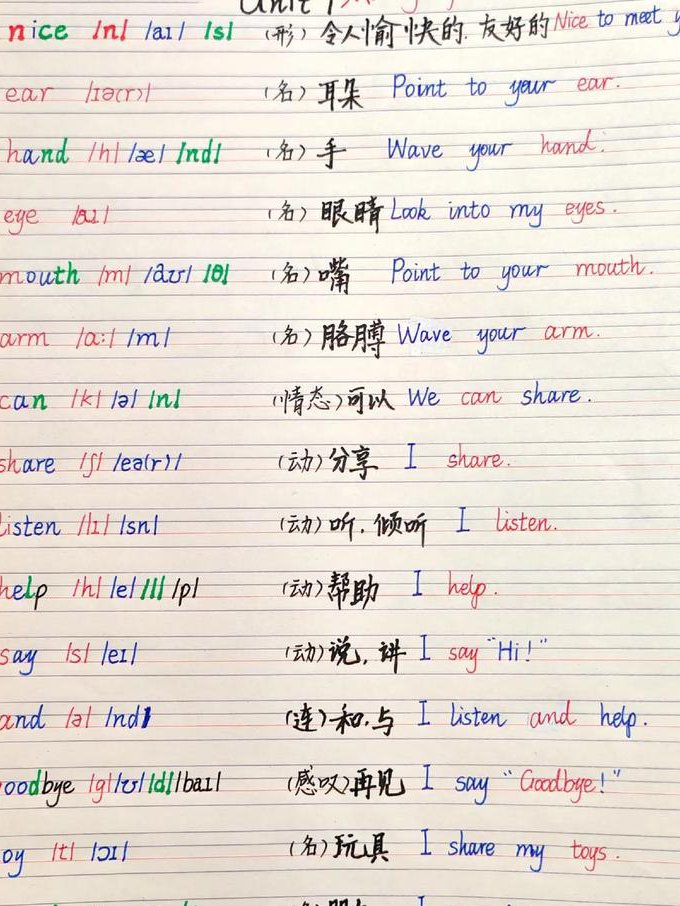 Unit 1
nice /n/ /aɪ/ /s/ (形) 令人愉快的, 友好的 Nice to meet y
ear /ɪə(r)/ (名) 耳朵 Point to your ear.
hand /h/ /æ/ /nd/ (名) 手 Wave your hand.
eye /aɪ/ (名) 眼睛 Look into my eyes.
mouth /m/ /aʊ/ /θ/ (名) 嘴 Point to your mouth.
arm /ɑː/ /m/ (名) 胳膊 Wave your arm.
can /k/ /ə/ /n/ (情态) 可以 We can share.
share /ʃ/ /eə(r)/ (动) 分享 I share.
listen /lɪ/ /sn/ (动) 听, 倾听 I listen.
help /h/ /e/ /l/ /p/ (动) 帮助 I help.
say /s/ /eɪ/ (动) 说, 讲 I say "Hi!"
and /ə/ /nd/ (连) 和, 与 I listen and help.
oodbye /g/ /ʊ/ /d/ /baɪ/ (感叹) 再见 I say "Goodbye!"
oy /t/ /ɔɪ/ (名) 玩具 I share my toys.